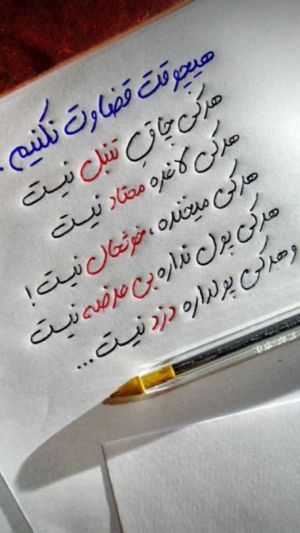 هیچوقت قضاوت نکنیم.
هرکی چاقِ تنبل نیست
هرکی لاغره معتاد نیست
هرکی میخنده، خوشحال نیست!
هرکی پول نداره بی عرضه نیست
و هرکی پولداره دزد نیست...